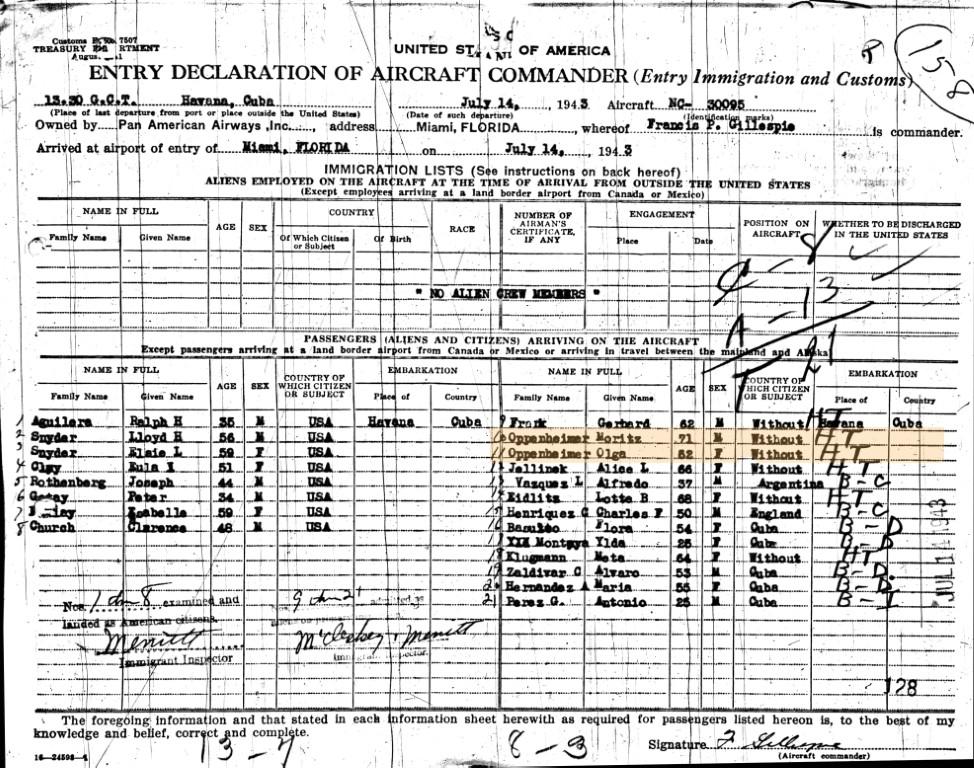 Customs Form 7507
TREASURY DEPARTMENT
UNITED STATES OF AMERICA
ENTRY DECLARATION OF AIRCRAFT COMMANDER (Entry Immigration and Customs)
158
13.30 G.C.T. Havana, Cuba July 14, 1943 Aircraft NC- 30095
(Place of last departure from port or place outside the United States) (Date of such departure) (Identification marks)
Owned by Pan American Airways ,Inc., address Miami, FLORIDA, whereof Francis P. Gillespie is commander.
Arrived at airport of entry of Miami, FLORIDA on July 14, 1943
IMMIGRATION LISTS (See instructions on back hereof)
ALIENS EMPLOYED ON THE AIRCRAFT AT THE TIME OF ARRIVAL FROM OUTSIDE THE UNITED STATES
(Except employees arriving at a land border airport from Canada or Mexico)
NAME IN FULL AGE SEX COUNTRY RACE NUMBER OF AIRMAN'S CERTIFICATE, IF ANY ENGAGEMENT POSITION ON AIRCRAFT WHETHER TO BE DISCHARGED IN THE UNITED STATES
Family Name Given Name Of Which Citizen or Subject Of Birth Place Date
" NO ALIEN CREW MEMBERS "
PASSENGERS (ALIENS AND CITIZENS) ARRIVING ON THE AIRCRAFT
Except passengers arriving at a land border airport from Canada or Mexico or arriving in travel between the mainland and Alaska
NAME IN FULL AGE SEX COUNTRY OF WHICH CITIZEN OR SUBJECT EMBARKATION NAME IN FULL AGE SEX COUNTRY OF WHICH CITIZEN OR SUBJECT EMBARKATION
Family Name Given Name Place of Country Family Name Given Name Place of Country
1 Aguilera Ralph H 35 M USA Havana Cuba 9 Frank Gerhard 62 M Without Havana Cuba HT
2 Snyder Lloyd H 56 M USA 10 Oppenheimer Moritz 71 M Without HT
3 Snyder Elsie L 59 F USA 11 Oppenheimer Olga 52 F Without HT
4 Clay Eula I 51 F USA 12 Jellinek Alice L 66 F Without HT
5 Rothenberg Joseph 44 M USA 13 Vazques L Alfredo 37 M Argentina B-C
6 Peter 34 M USA 14 Eidlitz Lotte B 68 F Without HT
7 Isabelle 59 F USA 15 Henriquez C Charles F 50 M England B-C
8 Church Clarence 48 M USA 16 Basulto Flora 54 F Cuba B-D
17 Montaya Ylda 25 F Cuba B-D
18 Klugmann Meta 64 F Without HT
19 Zaldivar C Alvaro 53 M Cuba B-D.
20 Hernandez A Maria 55 F Cuba B-D.
21 Perez G. Antonio 25 M Cuba B-I
Nos. 1 dn 8 examined and 9 dn 21
landed as American citizens.
Merritt McCloskey, Merritt
Immigrant Inspector Immigrant Inspector.
JUL 14 1943
128
The foregoing information and that stated in each information sheet herewith as required for passengers listed hereon is, to the best of my
knowledge and belief, correct and complete.
13-7 8-3 Signature F Gillespie
(Aircraft commander)
16-24598-1